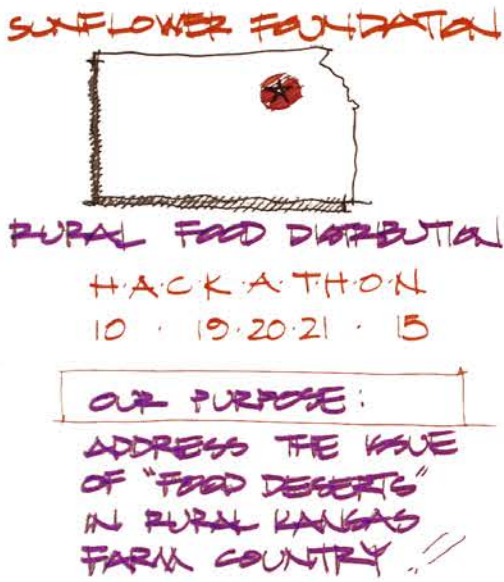 SUNFLOWER FOUNDATION
RURAL FOOD DISTRIBUTION
H·A·C·K·A·T·H·O·N
10 · 19·20·21 · 15
OUR PURPOSE:
ADDRESS THE ISSUE
OF "FOOD DESERTS"
IN RURAL KANSAS
FARM COUNTRY